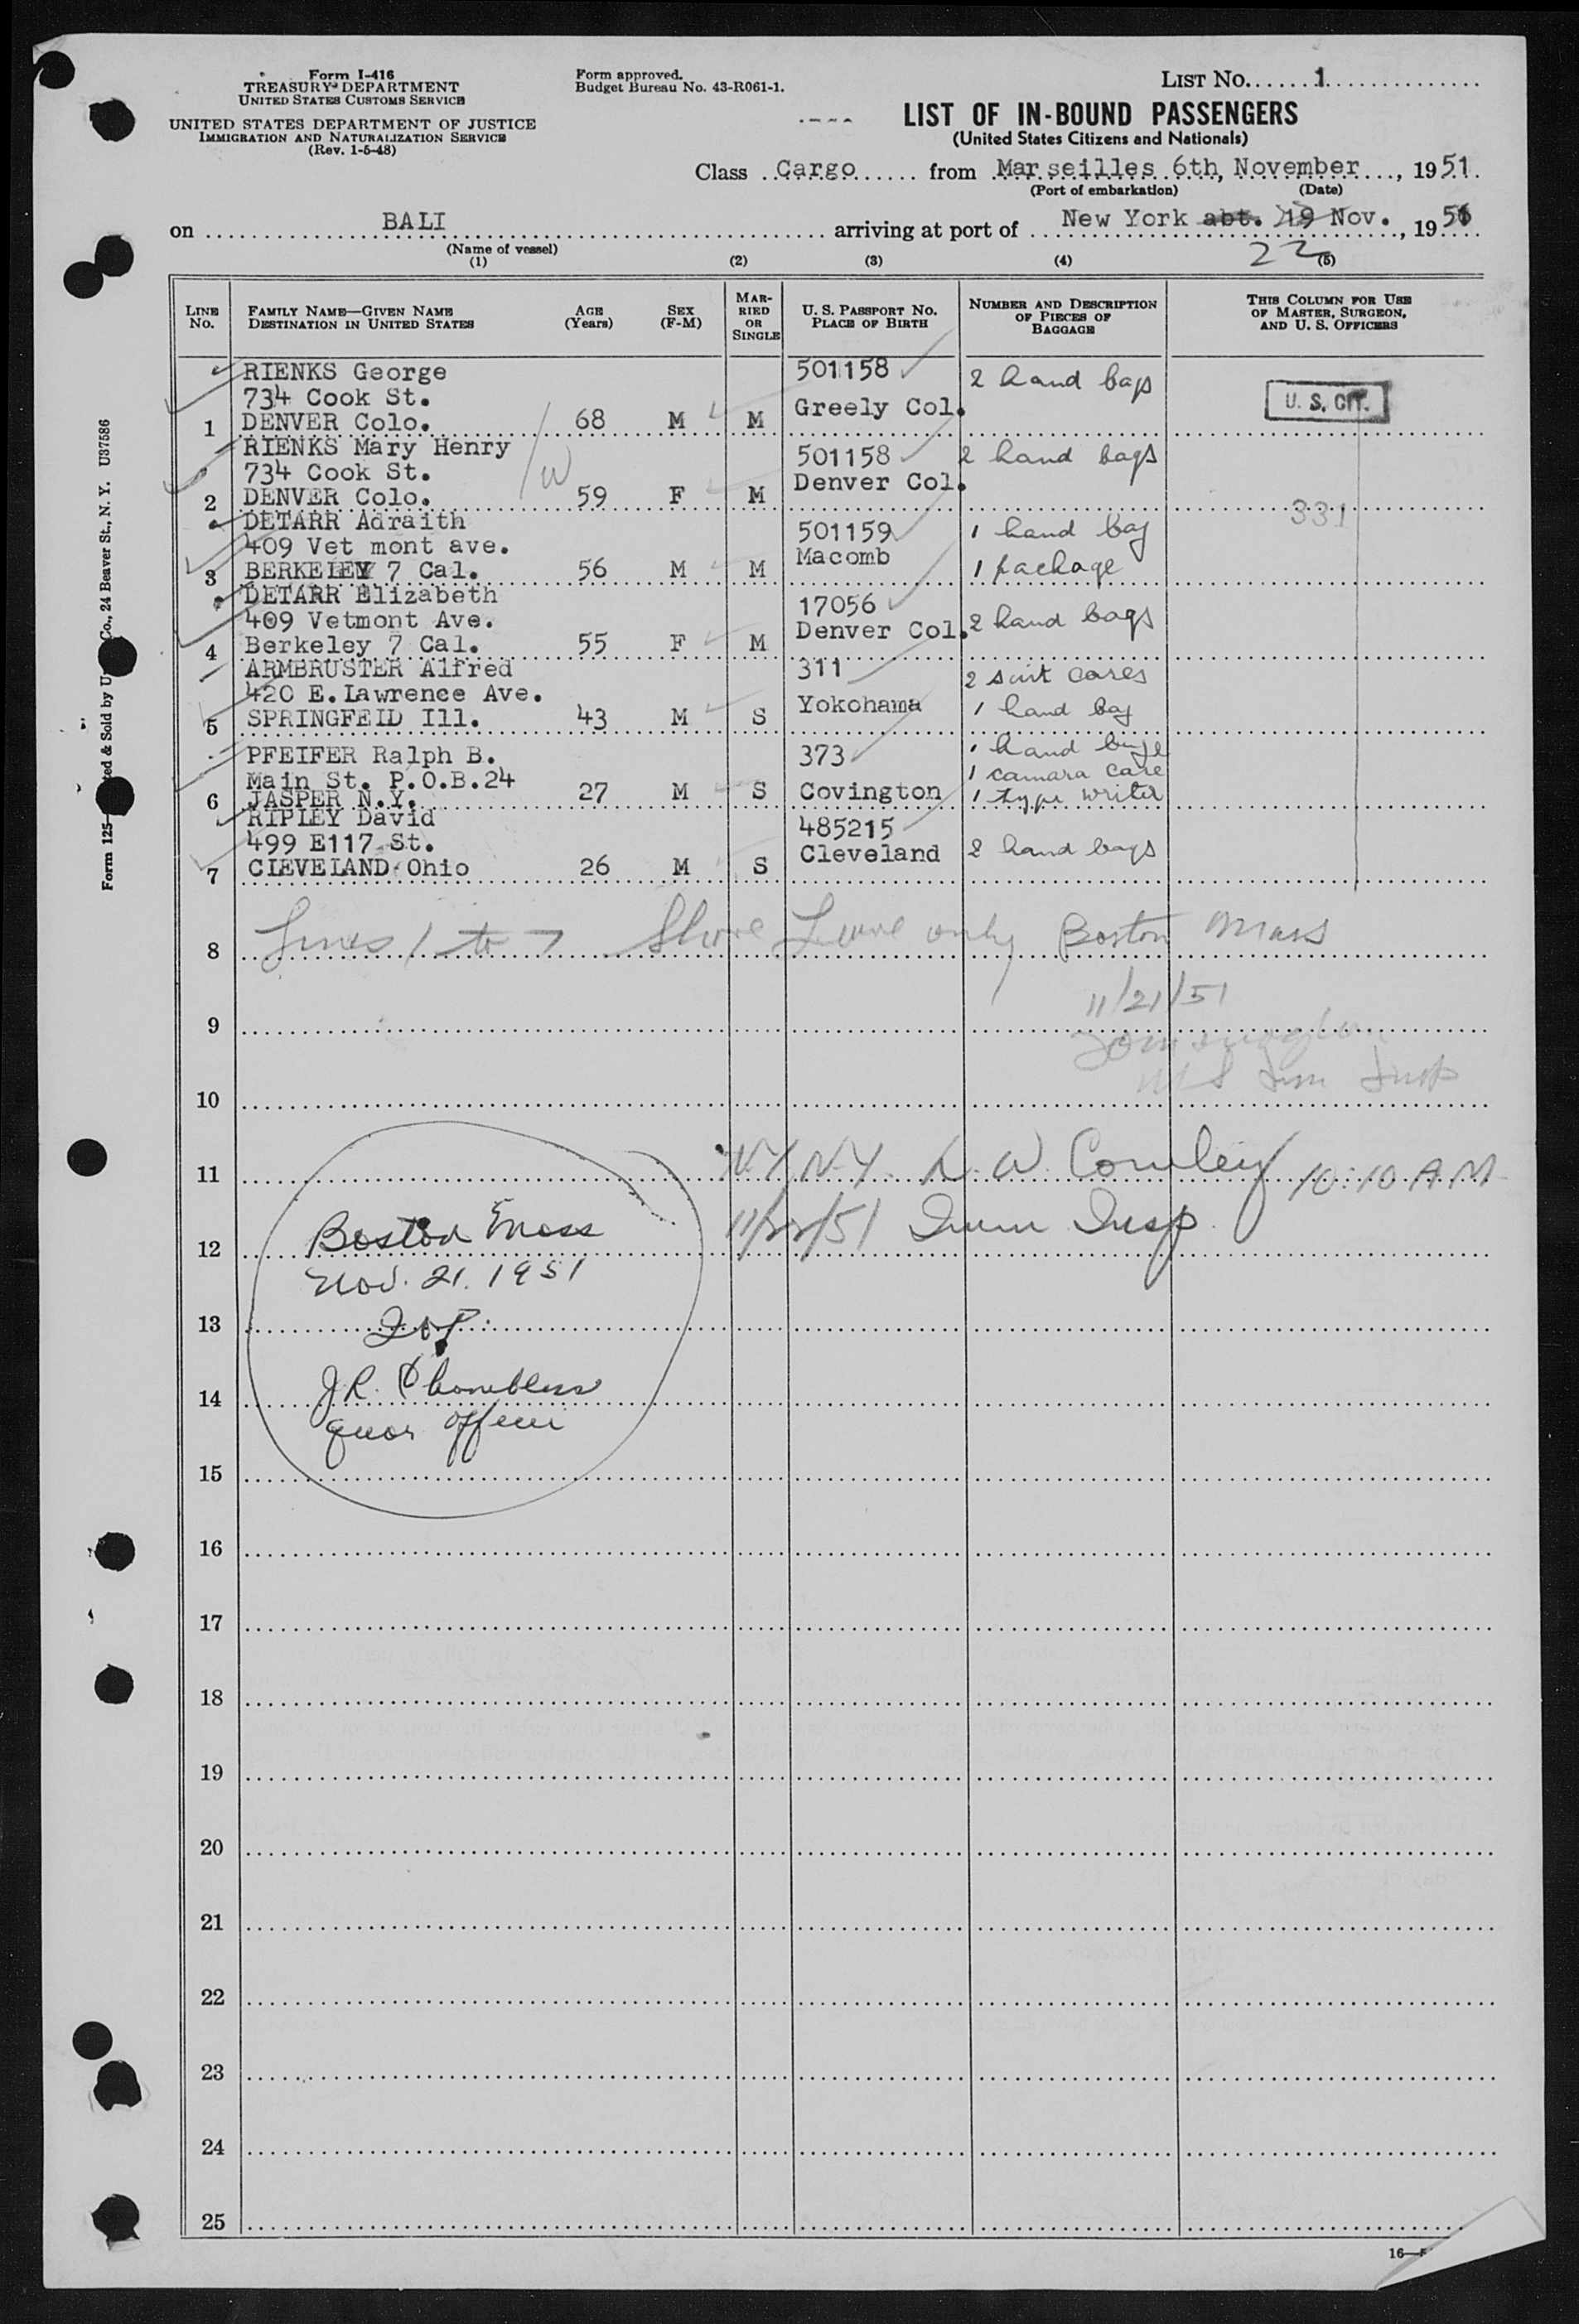 Form I-416
TREASURY DEPARTMENT
UNITED STATES CUSTOMS SERVICE
UNITED STATES DEPARTMENT OF JUSTICE
IMMIGRATION AND NATURALIZATION SERVICE
(Rev. 1-5-48)
Form approved.
Budget Bureau No. 43-R061-1.
LIST NO. 1
LIST OF IN-BOUND PASSENGERS
(United States Citizens and Nationals)
Class Cargo from Marseilles 6th, November, 1951.
(Port of embarkation) (Date)
on BALI arriving at port of New York abt. 19 Nov., 1951
22
(Name of vessel)
(1) (2) (3) (4) (5)
LINE No.
FAMILY NAME—GIVEN NAME
DESTINATION IN UNITED STATES
AGE (Years)
SEX (F-M)
MARRIED OR SINGLE
U. S. PASSPORT NO.
PLACE OF BIRTH
NUMBER AND DESCRIPTION OF PIECES OF BAGGAGE
THIS COLUMN FOR USE OF MASTER, SURGEON, AND U. S. OFFICERS
RIENKS George 501158 2 hand bags
734 Cook St. Greely Col. U. S. CIT.
1 DENVER Colo. 68 M M
RIENKS Mary Henry 501158 2 hand bags
734 Cook St. Denver Col.
2 DENVER Colo. 59 F M
W
DETARR Adraith 501159 1 hand bag
331
409 Vet mont ave. Macomb
3 BERKELEY 7 Cal. 56 M M 1 package
DETARR Elizabeth 17056
409 Vetmont Ave. Denver Col. 2 hand bags
4 Berkeley 7 Cal. 55 F M
ARMBRUSTER Alfred 311 2 suit cases
420 E.Lawrence Ave. Yokohama 1 hand bag
5 SPRINGFEID Ill. 43 M S
PFEIFER Ralph B. 373 1 hand
Main St. P.O.B.24 1 camara case
6 JASPER N.Y. 27 M S Covington 1 type writer
RIPLEY David 485215
499 E117 St. Cleveland 2 hand bags
7 CLEVELAND Ohio 26 M S
8 Lines 1 to 7 Shore Leave only Boston Mass
11/21/51
9
US Imm Insp
10
11 NY NY. L. W. Cowley 10:10 AM
12 11/22/51 Imm Insp.
Boston Mass
Nov. 21. 1951
13
14 J.R. Chambless
quar officer
15
16
17
18
19
20
21
22
23
24
25
16—
Form 125 Sold by Co., 24 Beaver St., N. Y. U37586